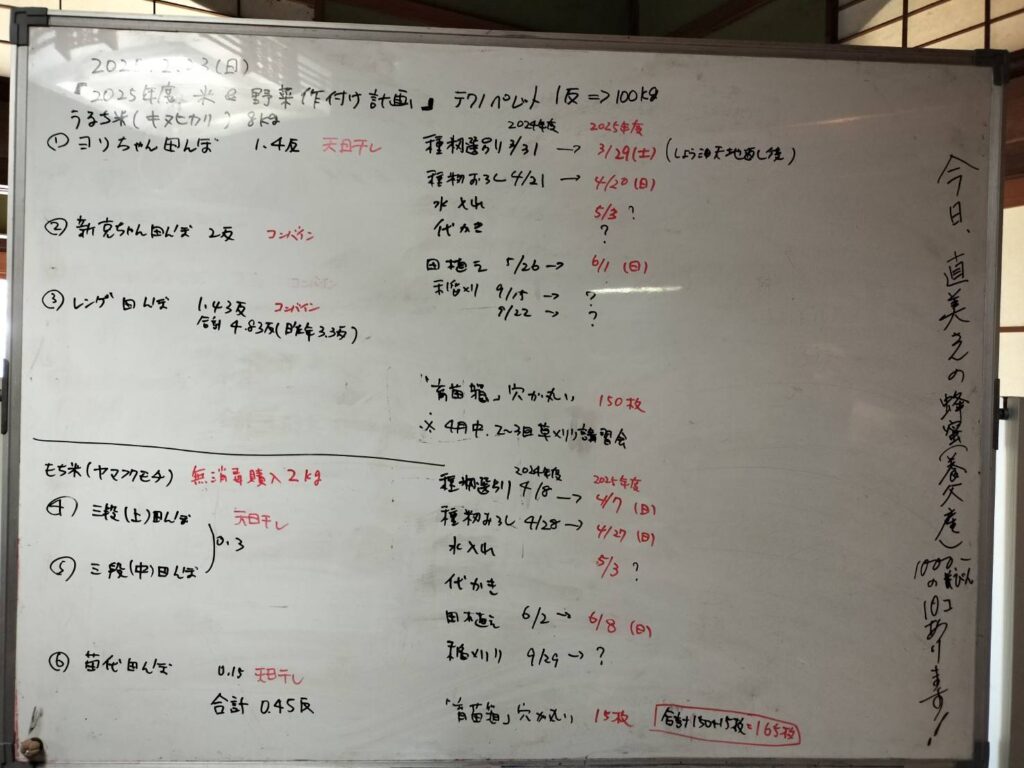 2025.2.23(日)
『2025年度 米&野菜作付け計画』 テクノペレット 1反=>100kg
うるち米(キヌヒカリ) 8kg
① ヨリちゃん田んぼ 1.4反 天日干し
② 新克ちゃん田んぼ 2反 コンバイン
コンバイン
③ レンゲ田んぼ 1.43反 コンバイン
合計 4.83反(昨年3.3反)
2024年度 2025年度
種籾選別 3/31 → 3/29(土) (しょうゆ天地返し後)
種籾おろし 4/21 → 4/20(日)
水入れ 5/3 ?
代かき ?
田植え 5/26 → 6/1 (日)
稲刈り 9/15 → ?
9/22 → ?
「育苗箱」穴が丸い 150枚
※ 4月中、2〜3回草刈り講習会
もち米(ヤマフクモチ) 無消毒購入2kg
④ 三段(上)田んぼ 天日干し
0.3
⑤ 三段(中)田んぼ
⑥ 苗代田んぼ 0.15 天日干し
合計 0.45反
2024年度 2025年度
種籾選別 4/8 → 4/7 (日)
種籾おろし 4/28 → 4/27 (日)
水入れ 5/3 ?
代かき
田植え 6/2 → 6/8 (日)
稲刈り 9/29 → ?
「育苗箱」穴が丸い 15枚 合計150+15枚=165枚
今日、直美さんの蜂蜜(養欠産)
1000円の
10コあります!!